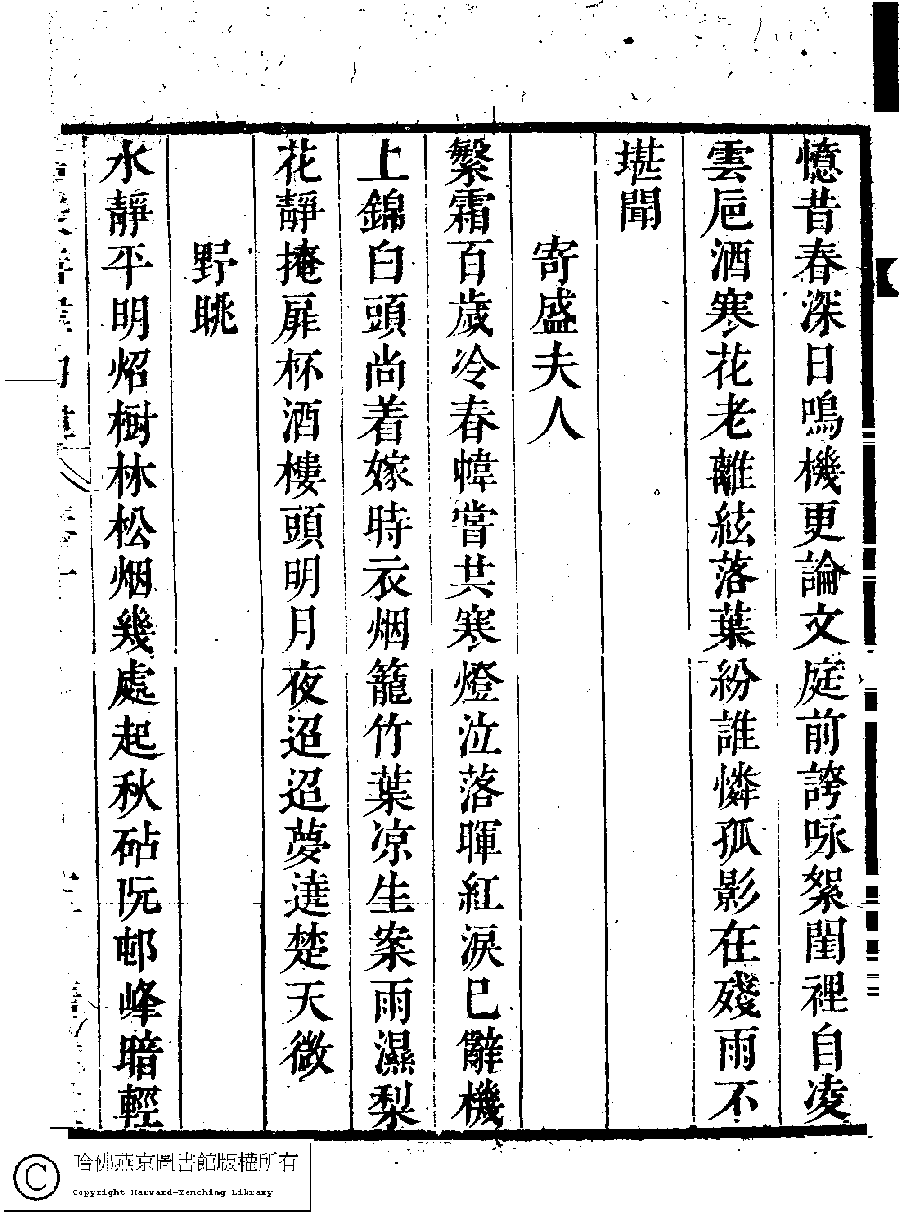 憶昔春深日鳴機更論文庭前誇咏絮閨裡自凌
雲巵酒寒花老離絃落葉紛誰憐孤影在殘雨不
堪聞
寄盛夫人
繁霜百歲冷春幃嘗共寒燈泣落暉紅淚已辭機
上錦白頭尚着嫁時衣烟籠竹葉凉生案雨濕梨
花靜掩扉杯酒樓頭明月夜迢迢夢遶楚天微
野眺
水靜平明炤樹林松烟幾處起秋砧阮邨峰暗輕
哈佛燕京圖書館版權所有
Copyright Harvard-Yenching Library